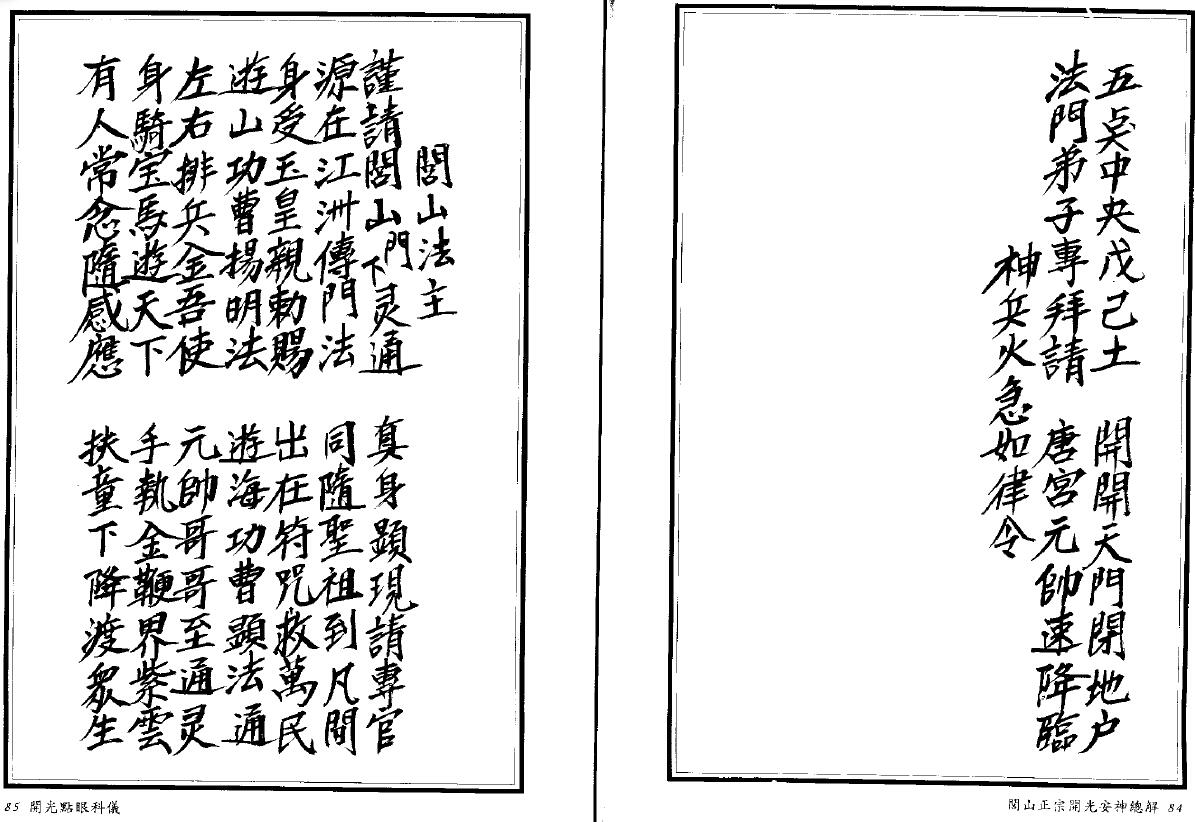 五点中央戊己土　開開天門閉地户
法門弟子專拜請　唐宮元帥速降臨
神兵火急如律令
閭山正宗開光安神總解 84
閭山法主
謹請閭山門下灵通　真身顕現請專官
源在江洲傳門法　同隨聖祖到凡間
身受玉皇親勅賜　出在符咒救萬民
遊山功曹揚明法　遊海功曹顕法通
左右排兵金吾使　元帥哥哥至通灵
身騎宝馬遊天下　手執金鞭界紫雲
有人常念隨感應　扶童下降渡眾生
85 開光點眼科儀